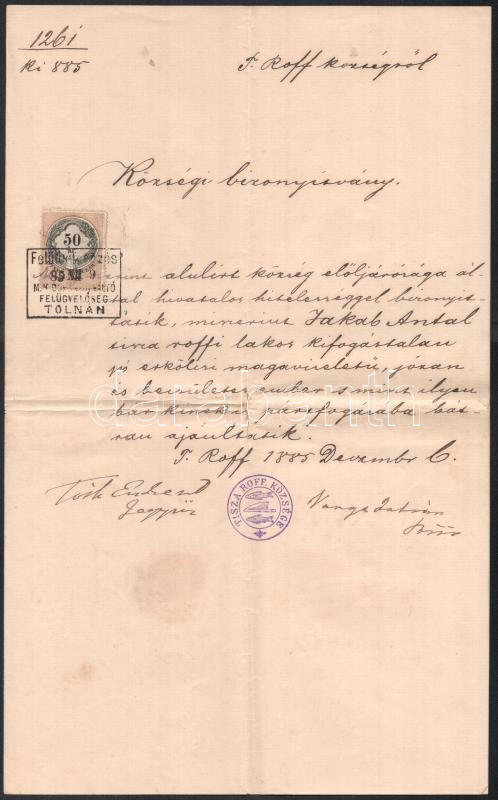 1261
ki 885
T. Roff községtől
Községi bizonyitvány.
50
Felülbélyegzés
85 XII 9
FELÜGYELŐSÉG
TOLNÁN
alulirt község előljárósága ál-
tal hivatalos hitelességgel bizonyit-
tatik, miszerint Jakab Antal
tisza roffi lakos kifogástalan
jó erkölcsi magaviseletű, józan
és becsületes ember s mint ilyen
bárkinek pártfogásába bát-
ran ajánltatik.
T. Roff 1885 Dezembr 6.
Tóth Endre
jegyző
TISZA ROFF KÖZSÉGE
Varga István
biró
darabanth